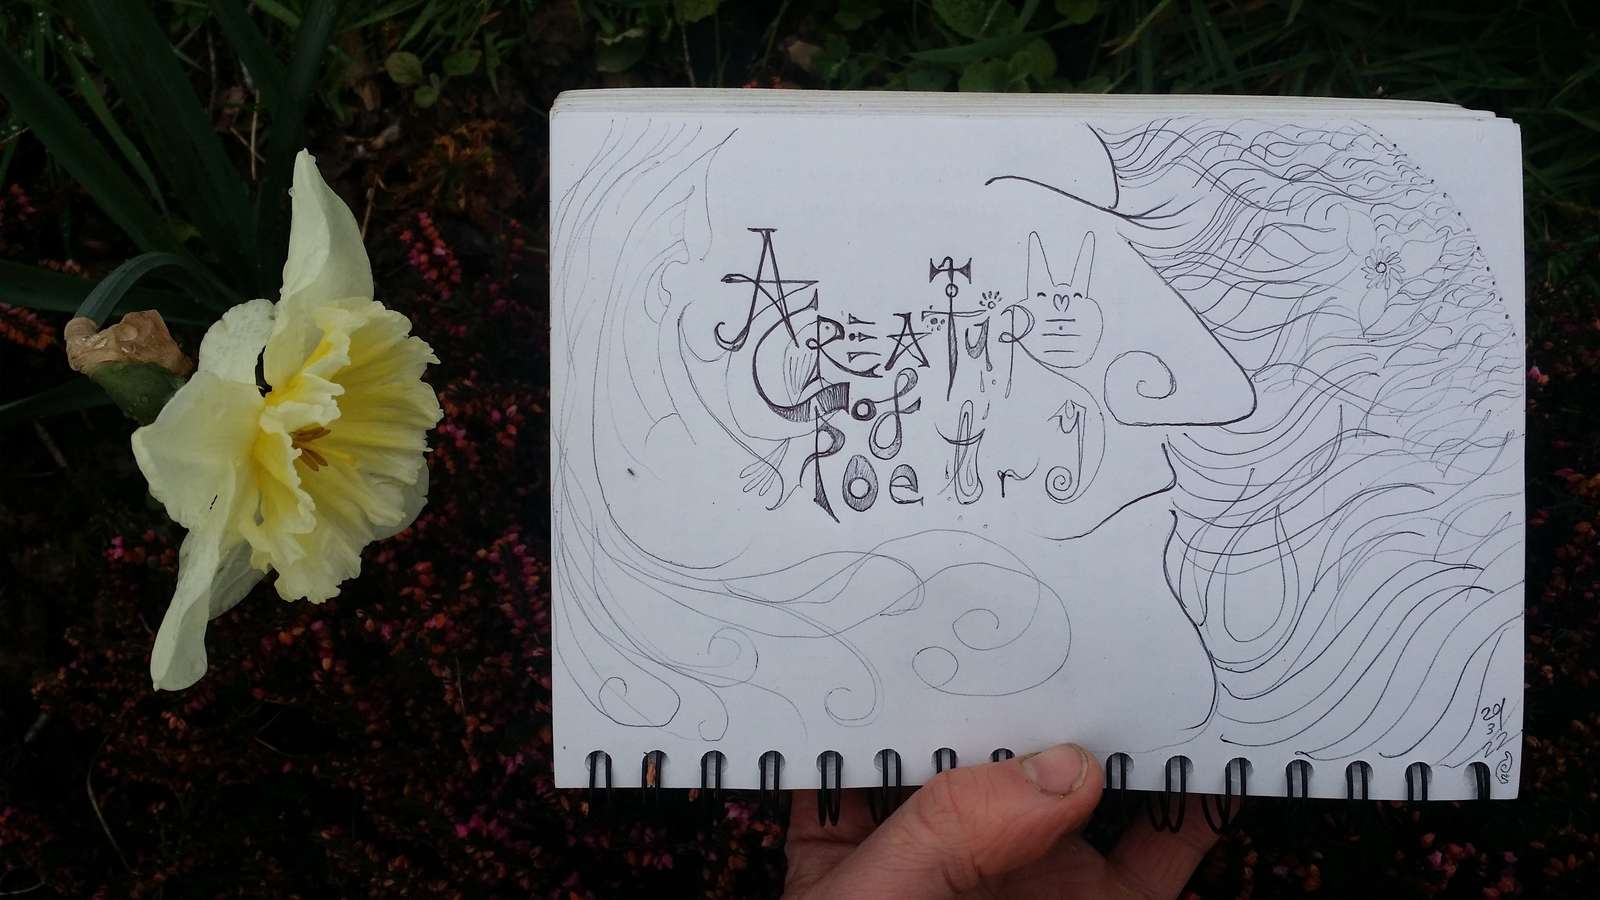 A
CREATURE
of
Poetry
29
3
22